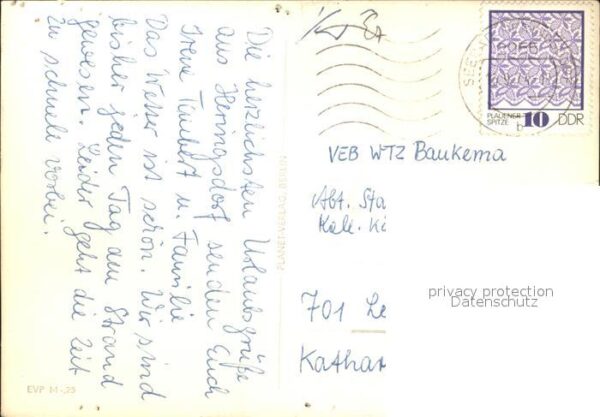 Die herzlichsten Urlaubsgrüße
aus Heringsdorf senden Euch
Irene Taubert u. Familie
Das Wetter ist schön. Wir sind
bisher jeden Tag am Strand
gewesen. Leider geht die Zeit
zu schnell vorbei.
EVP M -,25
PLAUENER
SPITZE
10 DDR
VEB WTZ Baukema
Abt. Sta
701 Le
Kathar
privacy protection
Datenschutz